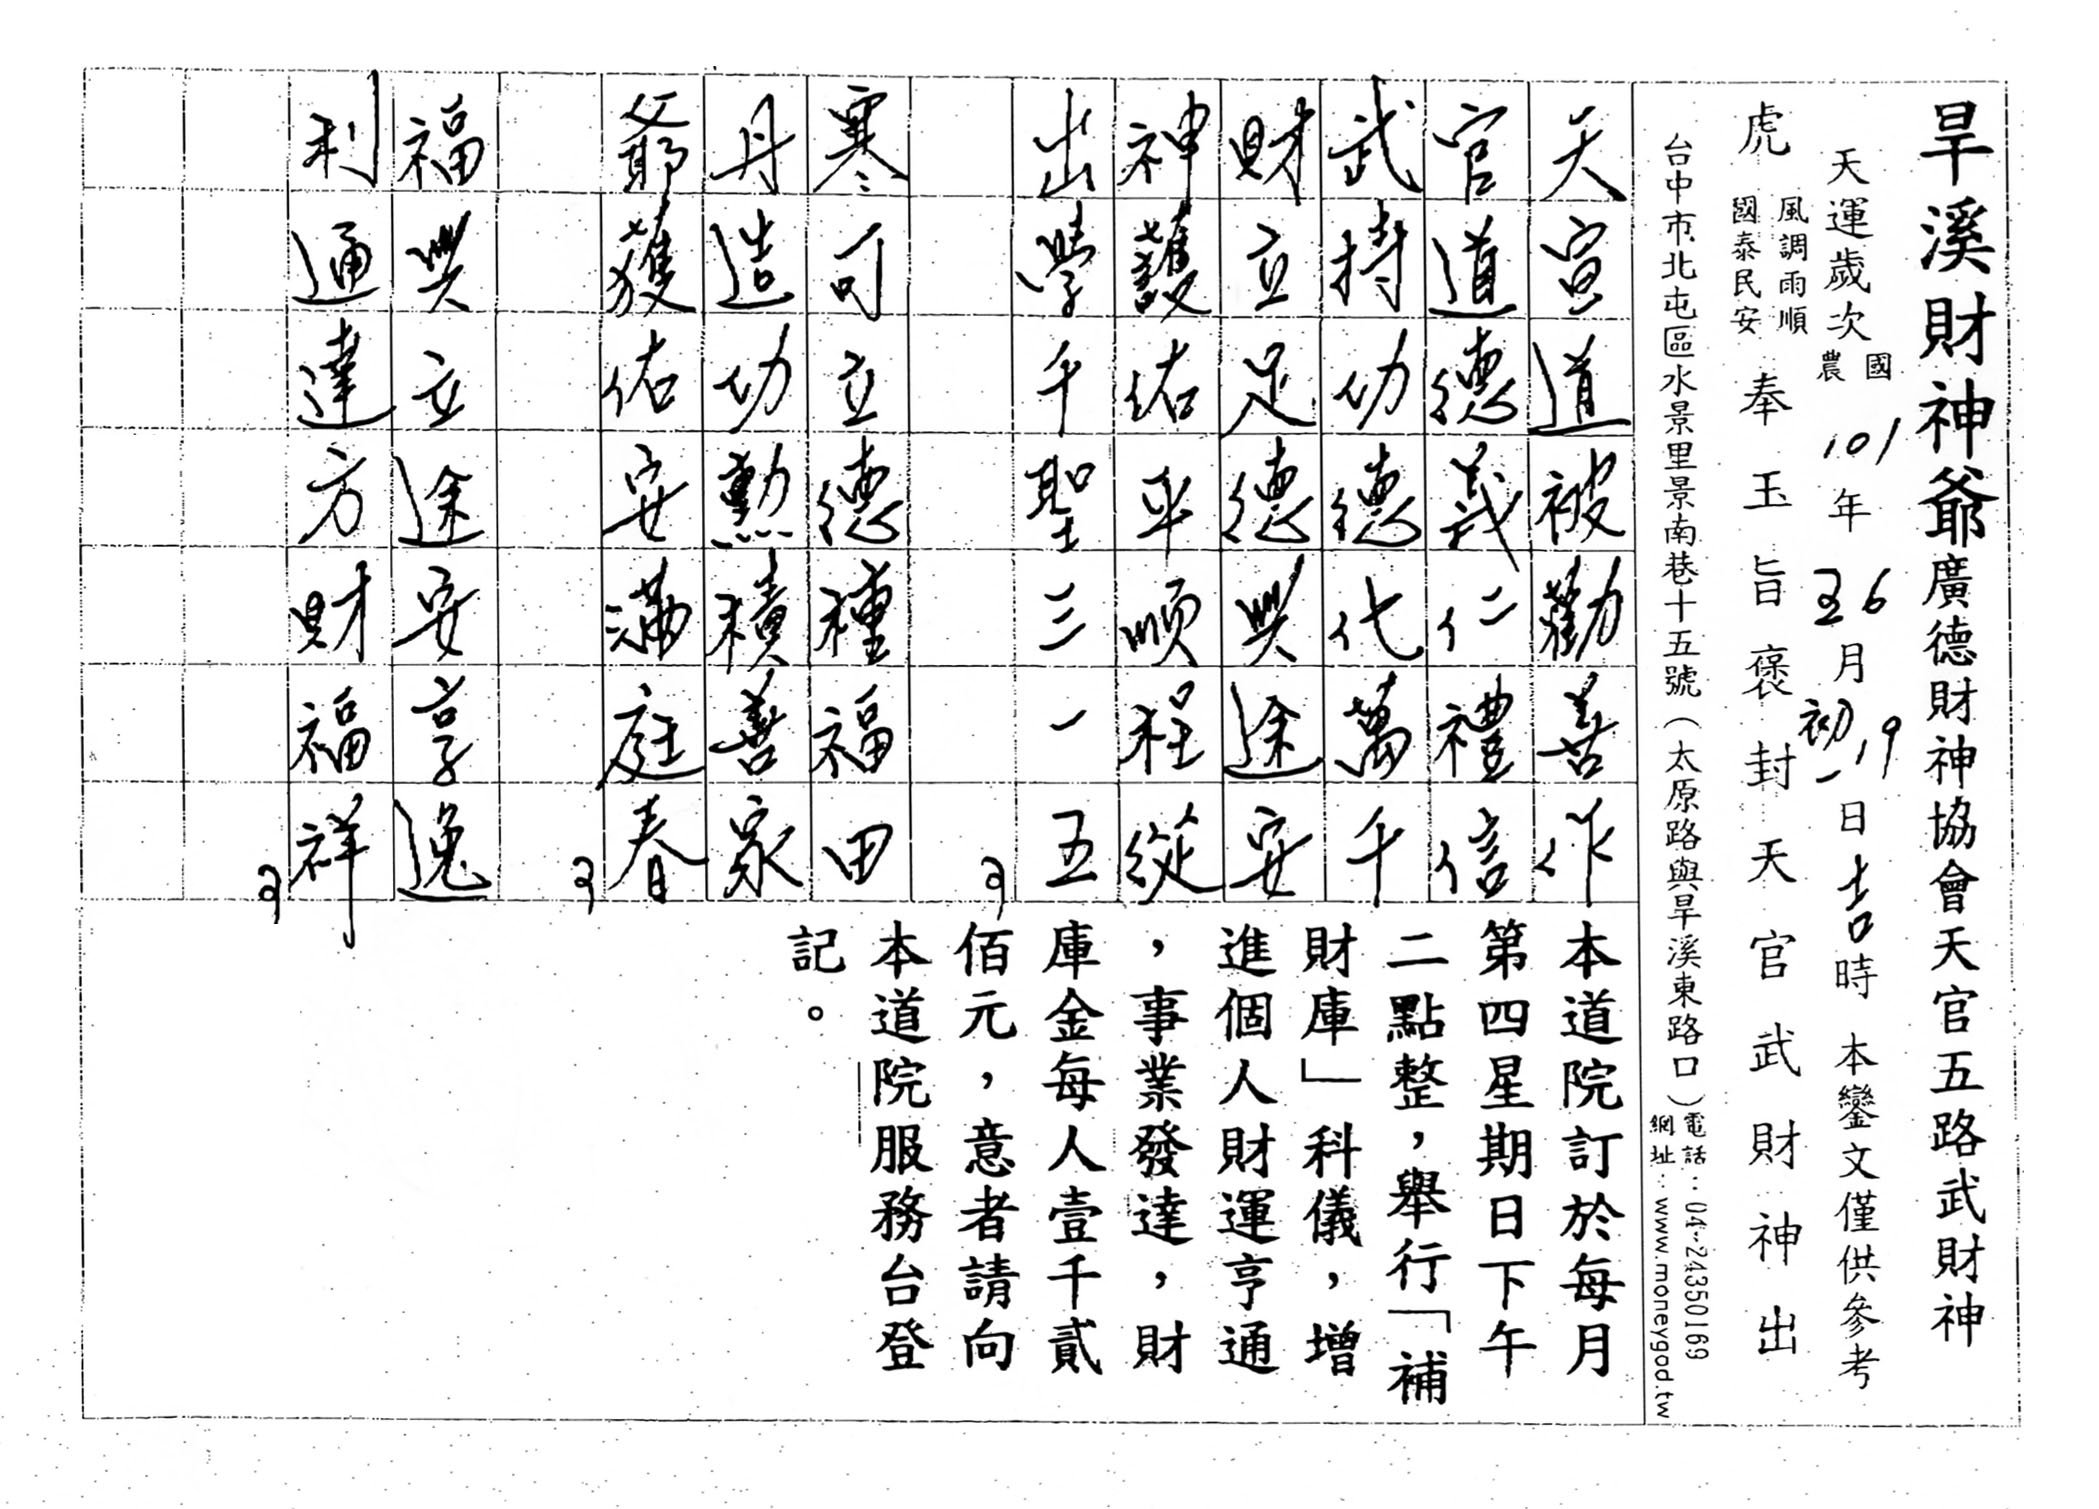 旱溪財神爺廣德財神協會天官五路武財神
天運歲次
國
農
101年
6
五
月
19
初一
日吉時 本鑾文僅供參考
虎
風調雨順
國泰民安
奉玉旨褒封天官武財神出
台中市北屯區水景里景南巷十五號（太原路與旱溪東路口）
電話：04-24350169
網址：www.moneygod.tw
天宣道被勸善作
官道德義仁禮信
武持功德代萬千
財立足德興途安
神護佑平順程從
出學千聖三一五
寒可立德種福田
丹造功勳積善家
爺獲佑安滿庭春
福興立途安享逸
利通達方財福祥
本道院訂於每月
第四星期日下午
二點整，舉行「補
財庫」科儀，增
進個人財運亨通
，事業發達，財
庫金每人壹千貳
佰元，意者請向
本道院服務台登
記。